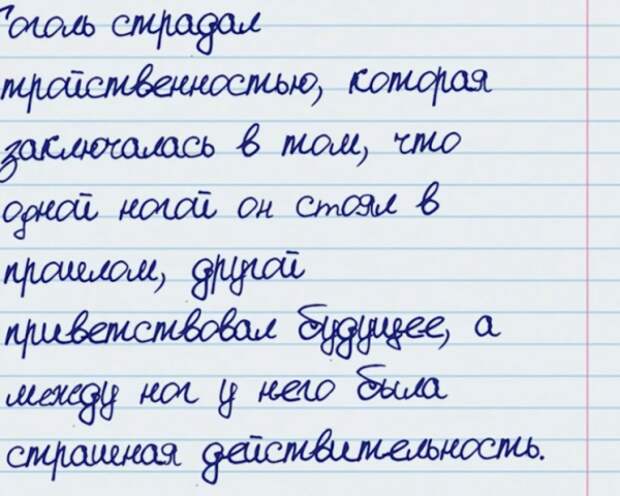 Гоголь страдал
тройственностью, которая
заключалась в том, что
одной ногой он стоял в
прошлом, другой
приветствовал будущее, а
между ног у него была
страшная действительность.